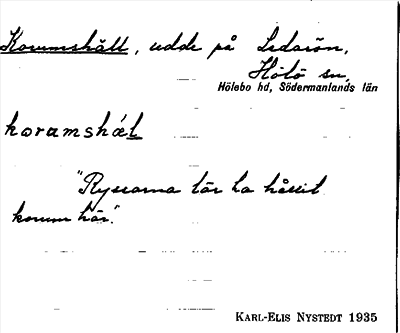 Korumshäll, udde på Ledarön,
Hölö sn,
Hölebo hd, Södermanlands län
koramshǽl
"Ryssarna lär ha hållit
komm här".
KARL-ELIS NYSTEDT 1935